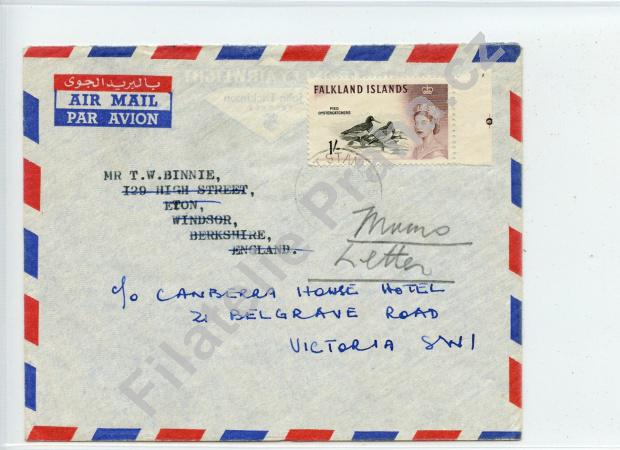 بالبريد الجوى
AIR MAIL
PAR AVION
FALKLAND ISLANDS
PIED
OYSTERCATCHERS
1/-
MR T.W.BINNIE,
129 HIGH STREET,
ETON,
WINDSOR,
BERKSHIRE,
ENGLAND.
Mums
Letter
c/o CANBERRA HOUSE HOTEL
21 BELGRAVE ROAD
VICTORIA SW1
Filatelie Praha.cz